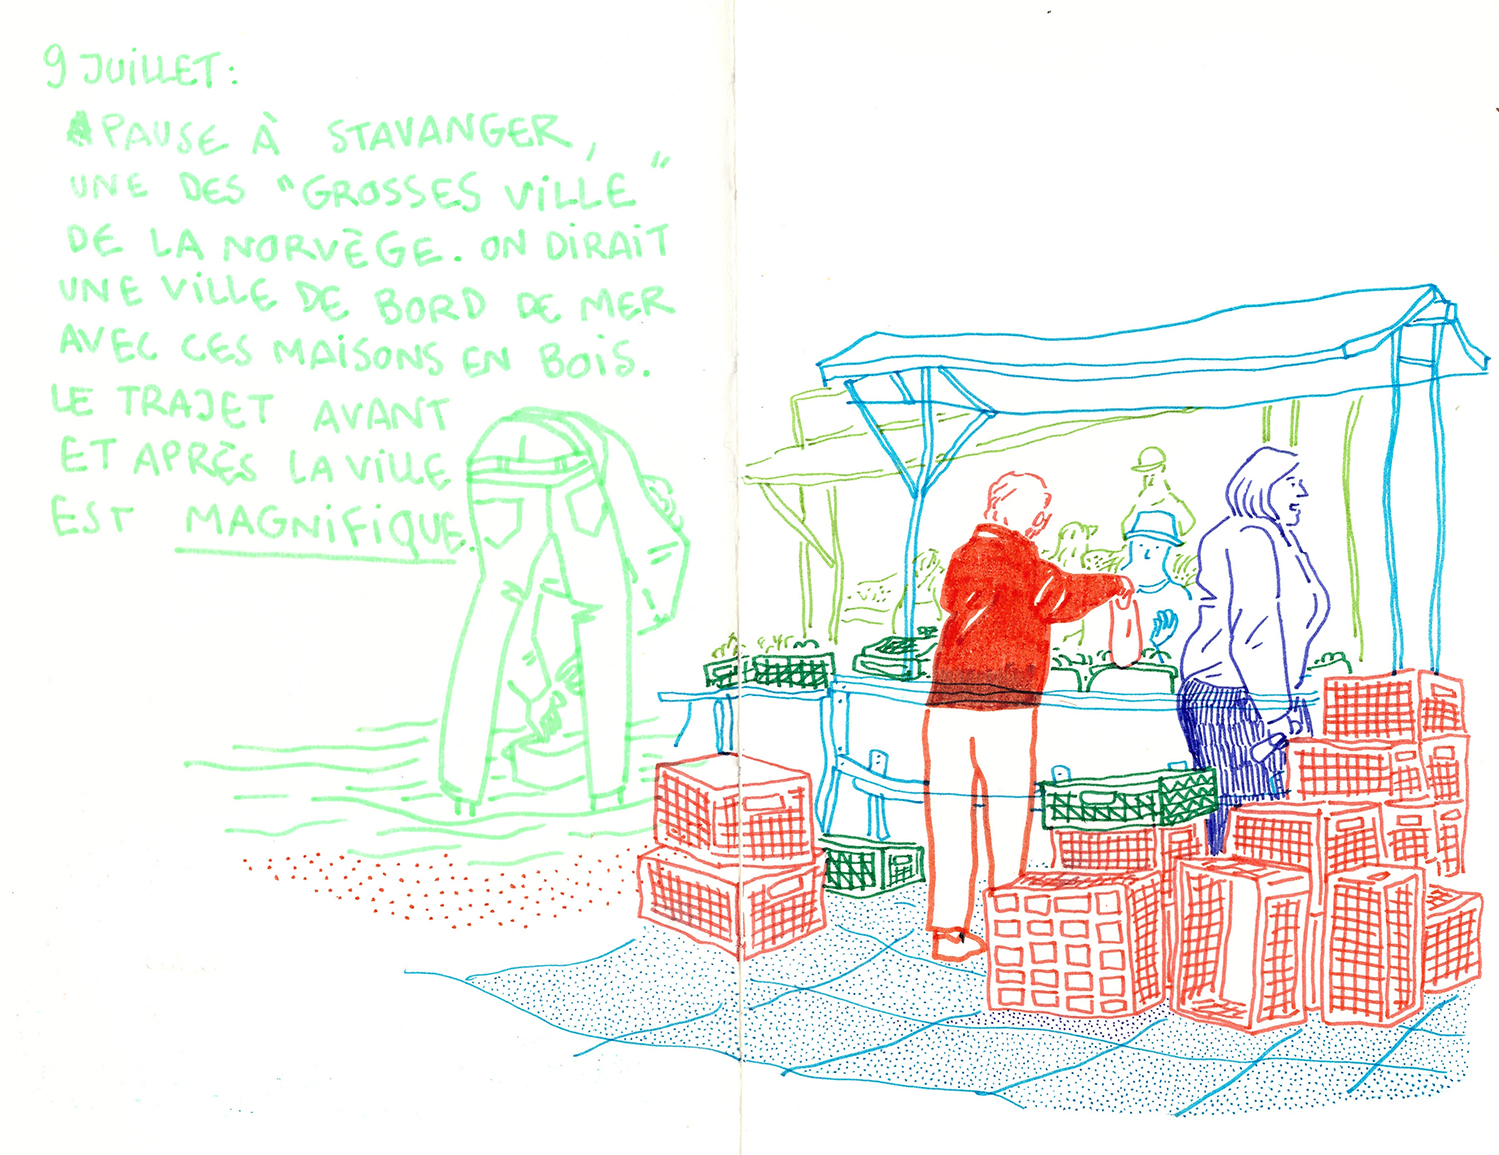 9 JUILLET :
PAUSE À STAVANGER,
UNE DES "GROSSES VILLE"
DE LA NORVÈGE. ON DIRAIT
UNE VILLE DE BORD DE MER
AVEC CES MAISONS EN BOIS.
LE TRAJET AVANT
ET APRÈS LA VILLE
EST MAGNIFIQUE.